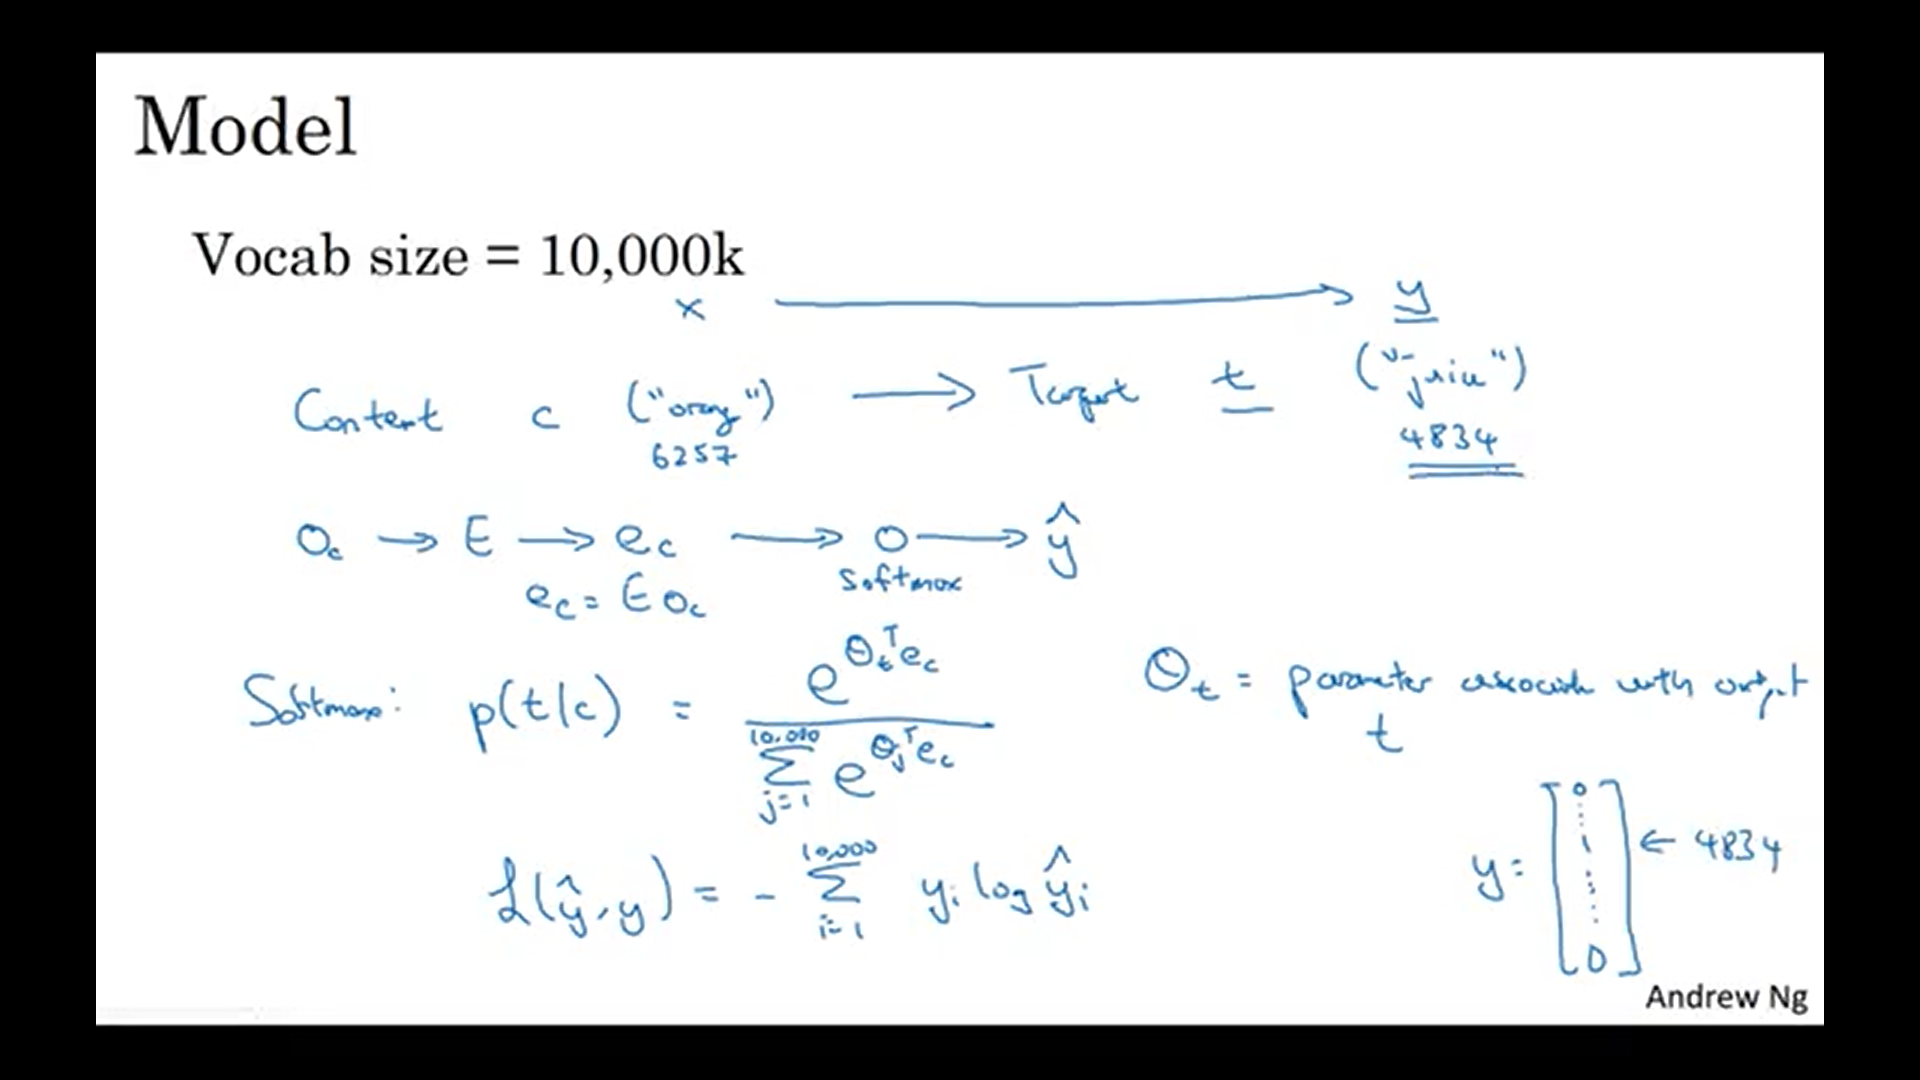 Model
Vocab size = 10,000k
x → y
Context c ("orange") → Target t ("juice")
6257 4834
O_c → E → e_c → O → ŷ
softmax
e_c = E O_c
Softmax: p(t|c) = e^{θ_t^T e_c} / ∑_{j=1}^{10,000} e^{θ_j^T e_c}
θ_t = parameter associate with output t
L(ŷ, y) = - ∑_{i=1}^{10,000} y_i log ŷ_i
y = [0 ⋮ 1 ⋮ 0] ← 4834
Andrew Ng